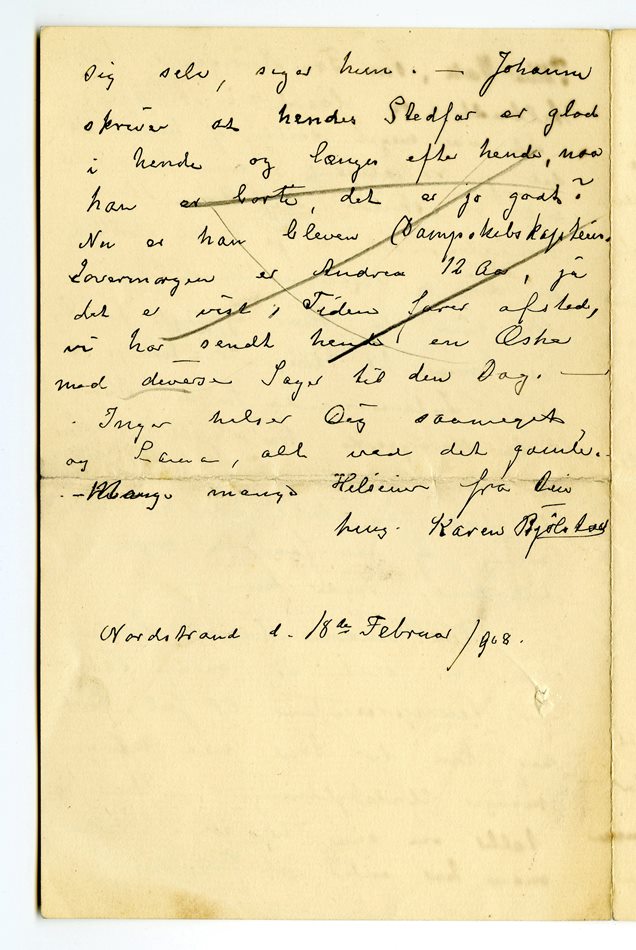 sig selv, siger hun. — Johanne
skriver at hendes Stedfar er glad
i hende og længes efter hende, naa
han er borte, det er jo godt?
Nu er han bleven (Dampskibskaptein.
Iovermorgen er Andrea 12 Aar, ja
det er vist, Tiden farer afsted,
vi har sendt hende en Æske
med diverse Sager til den Dag. —
Inger hilser Dig saameget,
og Laura, alt ved det gamle.
– Mange mange Hilsener fra Din
heng. Karen Bjølstad
Nordstrand d. 18de Februar /908.